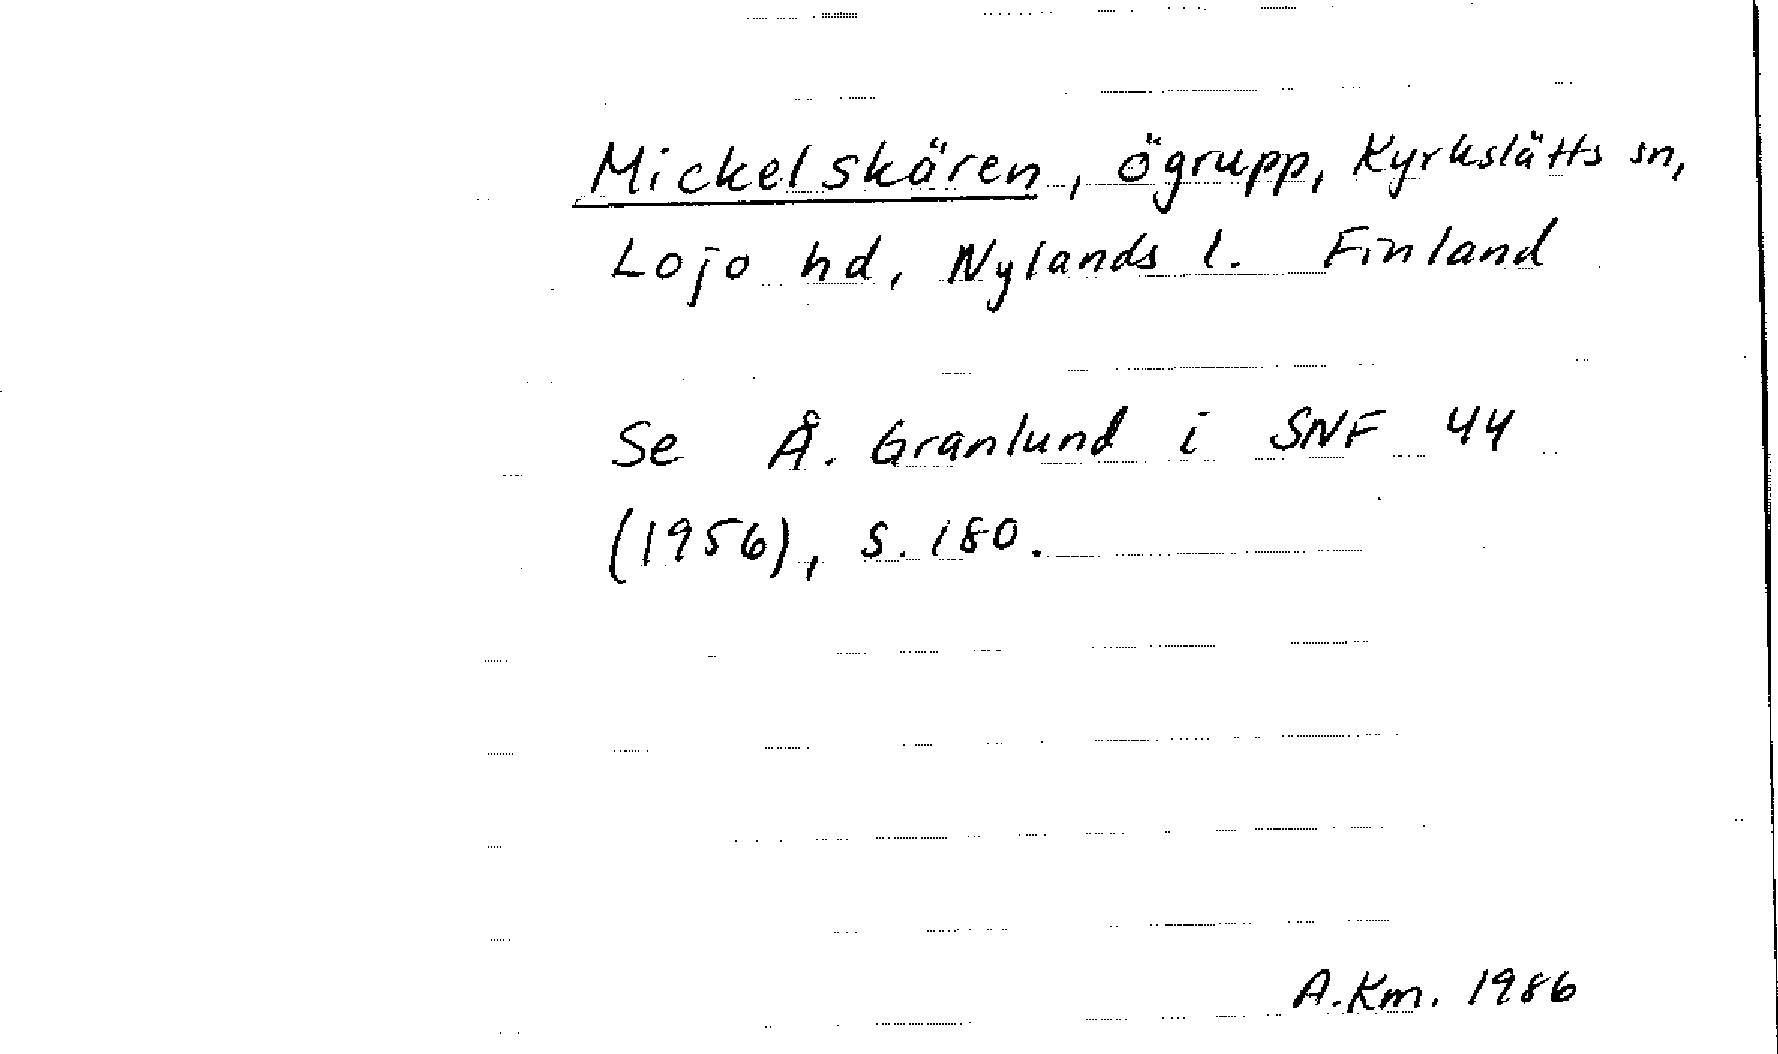 Mickelskären, ögrupp, Kyrkslätts sn,
Lojo hd, Nylands l. Finland
Se Å. Granlund i SNF 44
(1956), s. 180.
A.Km. 1986